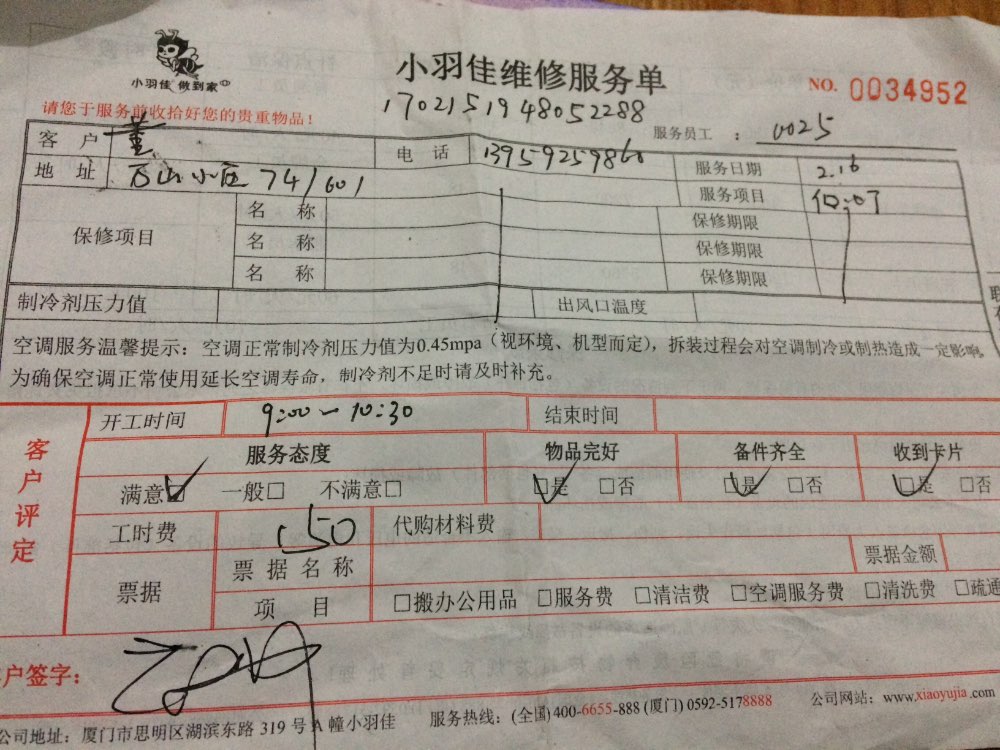 小羽佳 做到家
小羽佳维修服务单
NO. 0034952
请您于服务前收拾好您的贵重物品！
1702151948052288
服务员工 ： 0025
客 户 董 电 话 13959259860 服务日期 2.16
地 址 万山小区 74/601 服务项目
保修项目 名 称 保修期限
名 称 保修期限
名 称 保修期限
制冷剂压力值 出风口温度
空调服务温馨提示：空调正常制冷剂压力值为0.45mpa（视环境、机型而定），拆装过程会对空调制冷或制热造成一定影响，
为确保空调正常使用延长空调寿命，制冷剂不足时请及时补充。
客户评定
开工时间 9:00-10:30 结束时间
服务态度 物品完好 备件齐全 收到卡片
满意☑ 一般□ 不满意□ ☑是 □否 ☑是 □否 ☑是 □否
工时费 150 代购材料费
票据 票据名称 票据金额
项 目 □搬办公用品 □服务费 □清洁费 □空调服务费 □清洗费 □疏通
户签字：
公司地址：厦门市思明区湖滨东路 319 号 A 幢小羽佳 服务热线：(全国) 400-6655-888 (厦门) 0592-5178888 公司网站：www.xiaoyujia.com